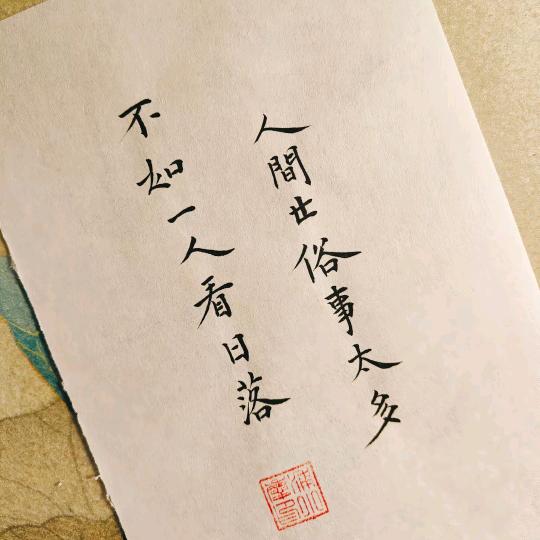 人間世俗事太多
不如一人看日落